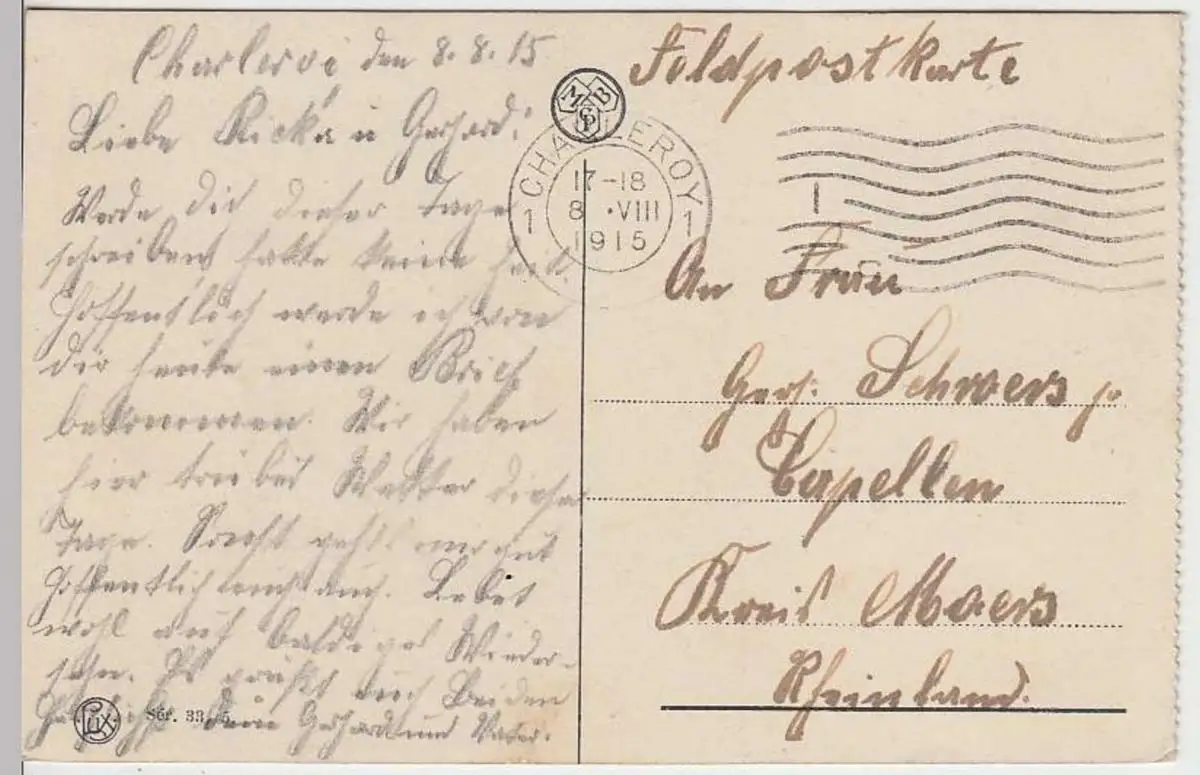 Charleroi den 8.8.15
Liebe Ricka u Gerhard!
Werde dir dieser Tage
schreiben hatte keine Zeit.
Hoffentlich werde ich von
dir heute einen Brief
bekommen. Wir haben
hier trübes Wetter dieser
Tage. Sonst geht's mir gut
Hoffentlich euch auch. Lebet
wohl auf baldiges Wieder-
sehn. Es grüßt euch Beiden
dein Gerhard und Vater.
LUX
Sér. 33
Feldpostkarte
MB
CHARLEROY
1 1
17-18
8 . VIII
1915
1
An Frau
Gerh. Schroers jr
Capellen
Kreis Moers
Rheinland.